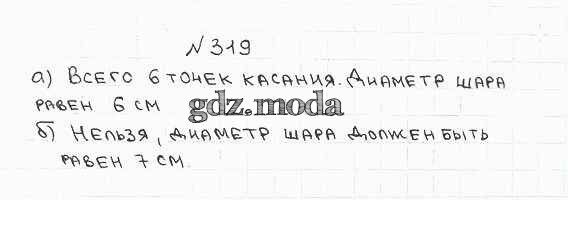 № 319
а) Всего 6 точек касания. Диаметр шара
равен 6 см
gdz.moda
б) Нельзя, диаметр шара должен быть
равен 7 см.